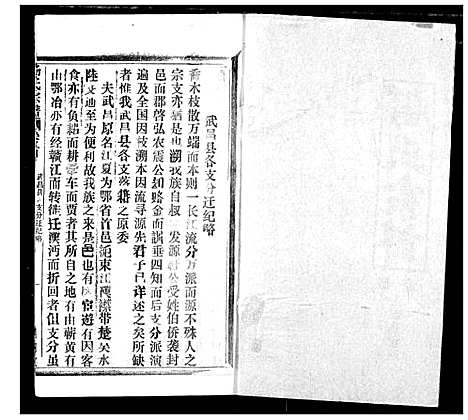 武昌县各支分迁纪略
乔木枝散万端而本则一长江流分万派而源不殊人之
宗支亦犹是也溯我族自叔 发源 公受姓伯侨袭封
邑而郡启弘农震公却赂金而誤垂四知而后支分派演
遍及全国因枝溯本因流寻源先君子已详述之矣所缺
者惟我武昌各支落籍之原委
夫武昌原名江夏为鄂省首邑 束江 襟带楚吴水
陆交通至为便利故我族之来是邑也有因宦游有因客
食亦有负耜而耕牵车而贾其所自之地有由蕲黄有
由鄂冶亦有经赣江而转徙迁汉沔而折回者但支分虽
武昌县 支分迁纪略